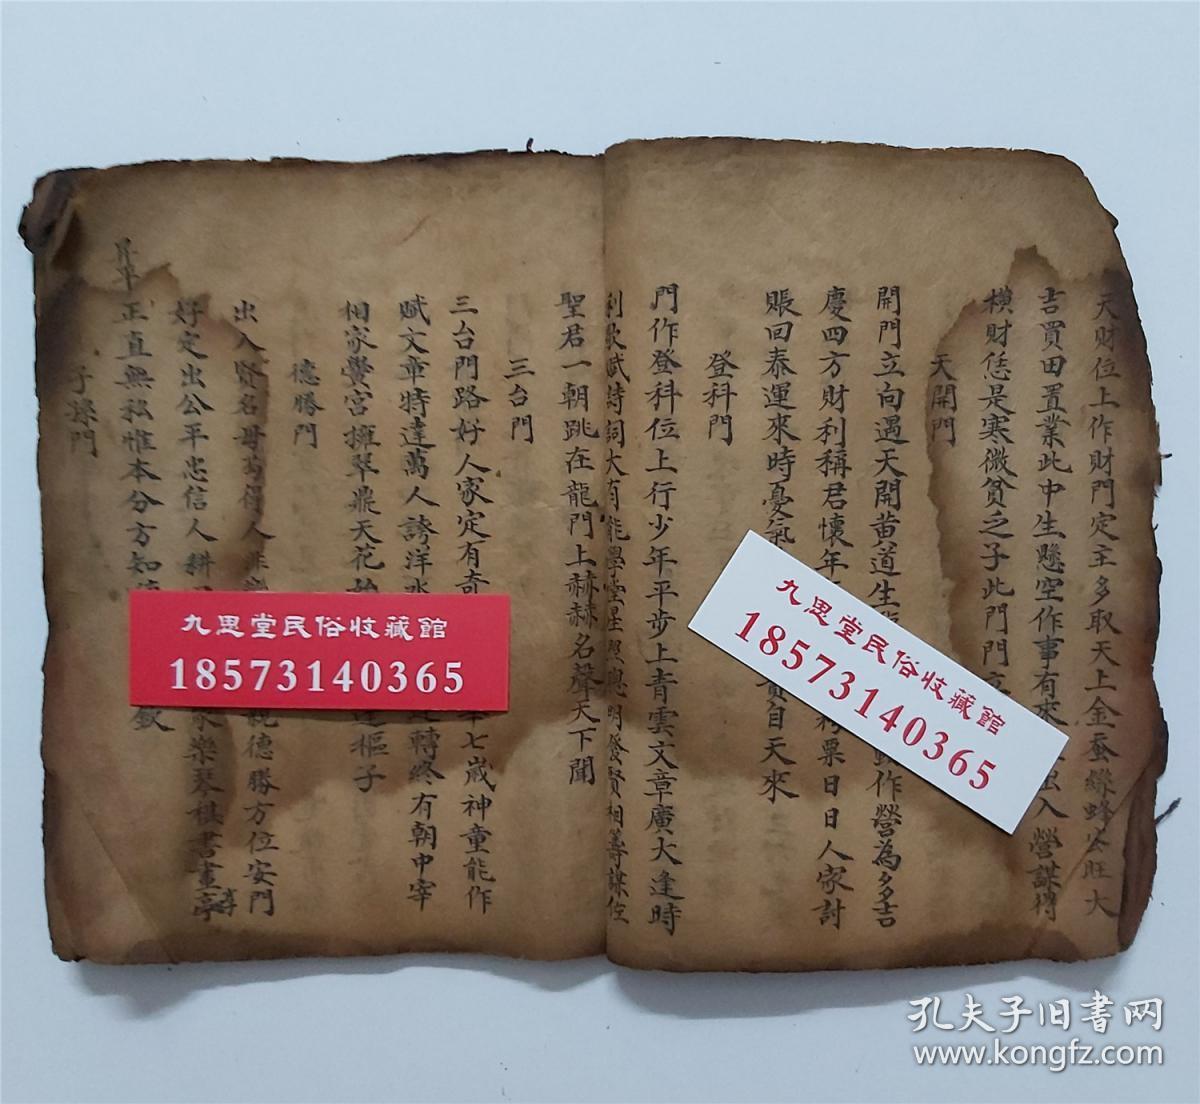 天財位上作財門定主多取天上金蚕絲蜂公旺大
吉買田置業此中生懸空作事有來出入營謀得
橫財恁是寒微貧乏子此門門
天開門
開門立向遇天開黄道生作營為多吉
慶四方財利稱君懷年粟日日人家討
賬回泰運來時憂氣自天來
登科門
門作登科位上行少年平步上青雲文章廣大逢時
利歌賦詩詞大有能學堂星照聰明發賢相籌謀佐
聖君一朝跳在龍門上赫赫名聲天下聞
三台門
三台門路好人家定有奇七歲神童能作
賦文章特達萬人誇洋水轉終有朝中宰
相家黌宮擁翠鼎天花樞子
德勝門
出入賢名得人德勝方位安門
好定出公平忠信人耕樂琴棋書畫亭
正直無私惟本分方知欽
門
九思堂民俗收藏館
18573140365
九思堂民俗收藏館
18573140365
孔夫子旧书网
www.kongfz.com